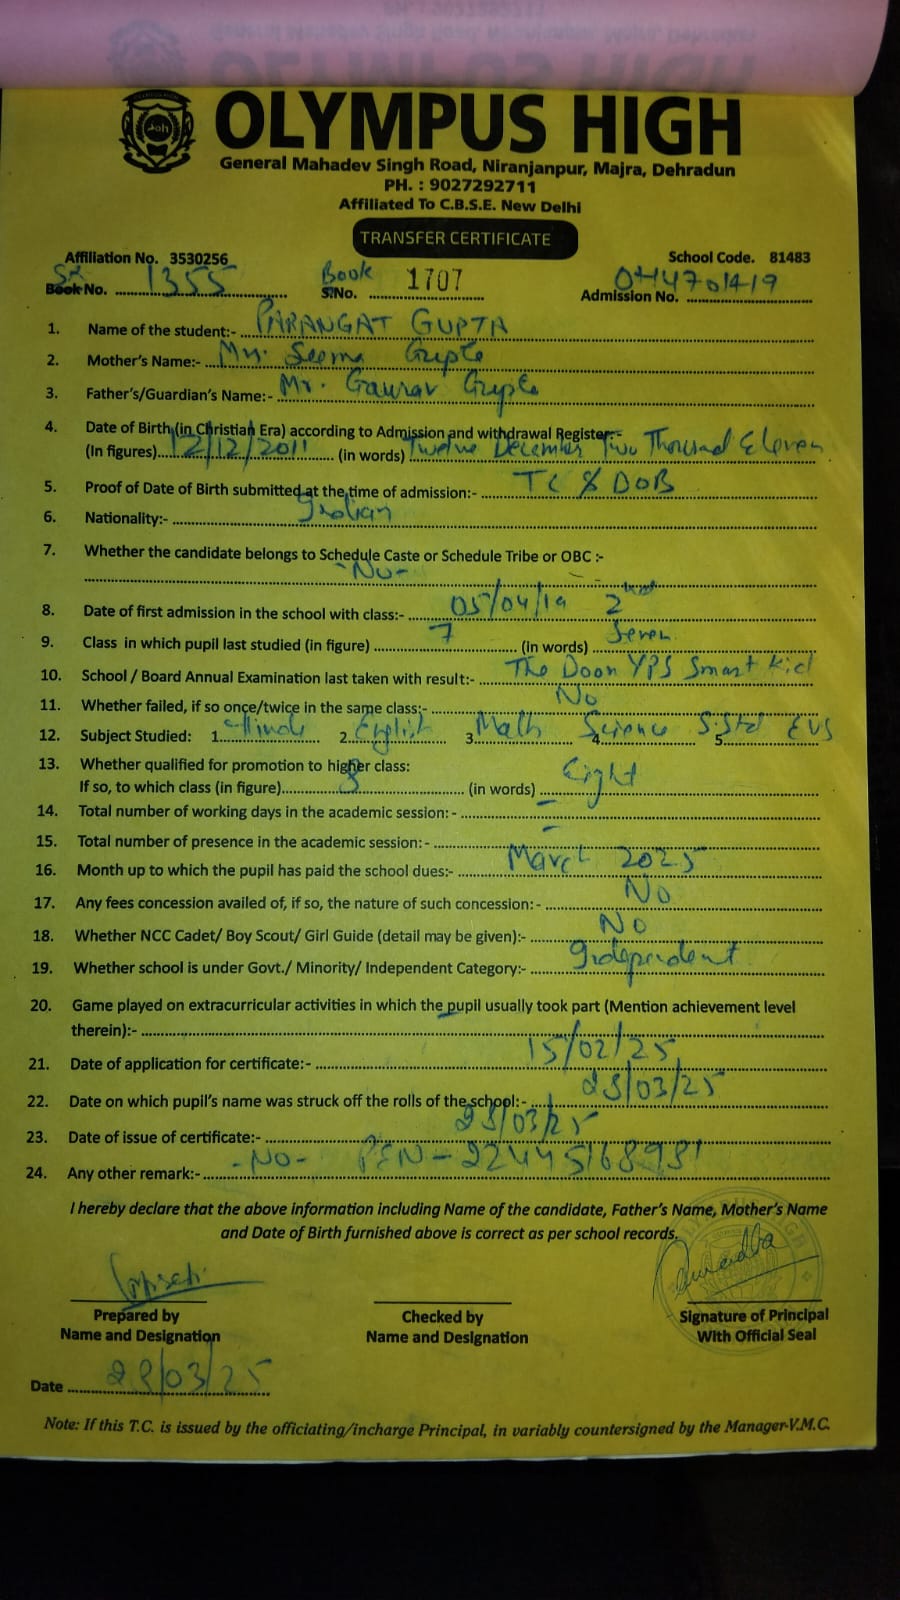 OLYMPUS HIGH
General Mahadev Singh Road, Niranjanpur, Majra, Dehradun
PH. : 9027292711
Affiliated To C.B.S.E. New Delhi
TRANSFER CERTIFICATE
Affiliation No. 3530256 School Code. 81483
Sr Book No. 1355 Book S.No. 1707 Admission No.
1. Name of the student:- PARANGAT GUPTA
2. Mother's Name:- Mrs. Seema Gupta
3. Father's/Guardian's Name:- Mr. Gaurav Gupta
4. Date of Birth (in Christian Era) according to Admission and withdrawal Register:-
(In figures) 12/12/2011 (in words) Twelve December Two Thousand Eleven
5. Proof of Date of Birth submitted at the time of admission:- TC & DOB
6. Nationality:- Indian
7. Whether the candidate belongs to Schedule Caste or Schedule Tribe or OBC :-
-No-
8. Date of first admission in the school with class:- 05/04/19 2nd
9. Class in which pupil last studied (in figure) 7 (in words) Seven
10. School / Board Annual Examination last taken with result:- The Doon YPS Smart Kid
11. Whether failed, if so once/twice in the same class:- No
12. Subject Studied: 1. Hindi 2. English 3. Math 4. Science S.Std 5. EVS
13. Whether qualified for promotion to higher class:
If so, to which class (in figure) 8 (in words) Eight
14. Total number of working days in the academic session: - -
15. Total number of presence in the academic session:- -
16. Month up to which the pupil has paid the school dues:- March 2025
17. Any fees concession availed of, if so, the nature of such concession:- No
18. Whether NCC Cadet/ Boy Scout/ Girl Guide (detail may be given):- No
19. Whether school is under Govt./ Minority/ Independent Category:- Independent
20. Game played on extracurricular activities in which the pupil usually took part (Mention achievement level
therein):-
21. Date of application for certificate:- 15/02/25
22. Date on which pupil's name was struck off the rolls of the school:-
23. Date of issue of certificate:-
24. Any other remark:- -No- PEN-
I hereby declare that the above information including Name of the candidate, Father's Name, Mother's Name
and Date of Birth furnished above is correct as per school records.
Prepared by Checked by Signature of Principal
Name and Designation Name and Designation With Official Seal
Date
Note: If this T.C. is issued by the officiating/incharge Principal, in variably countersigned by the Manager-V.M.C.